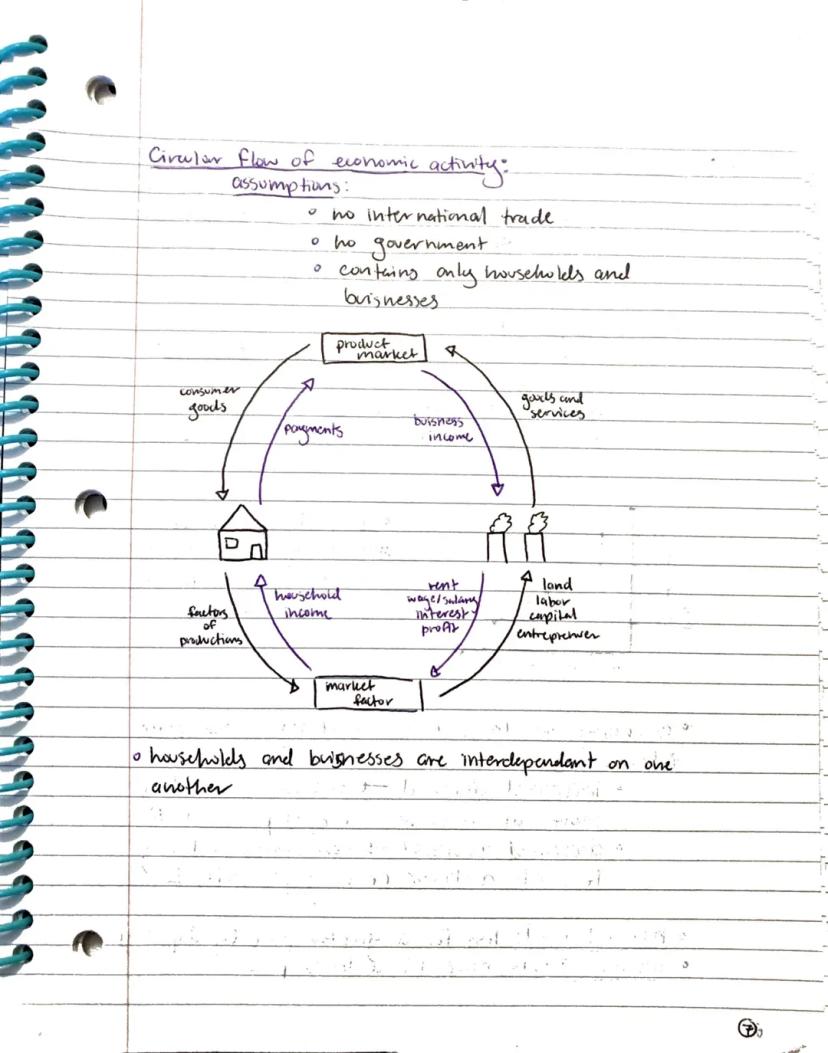 Circular flow of economic activity:
assumptions:
no international trade
no government
contains only households and
buisnesses
product
market
consumer
goods
payments
buisness
income
goods and
services
factors
of
productions
household
income
rent
wage/salary
interest
profit
land
labor
capital
entreprenuer
market
factor
households and buisnesses are interdependant on one
another
7